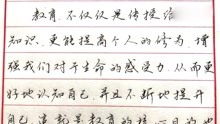 教育,不仅仅是传授给
知识,更能提高个人的修为,增
强我们对于生命的感受力,从而更
好地认知自己,并且不断地提升
自己,这就是教育的